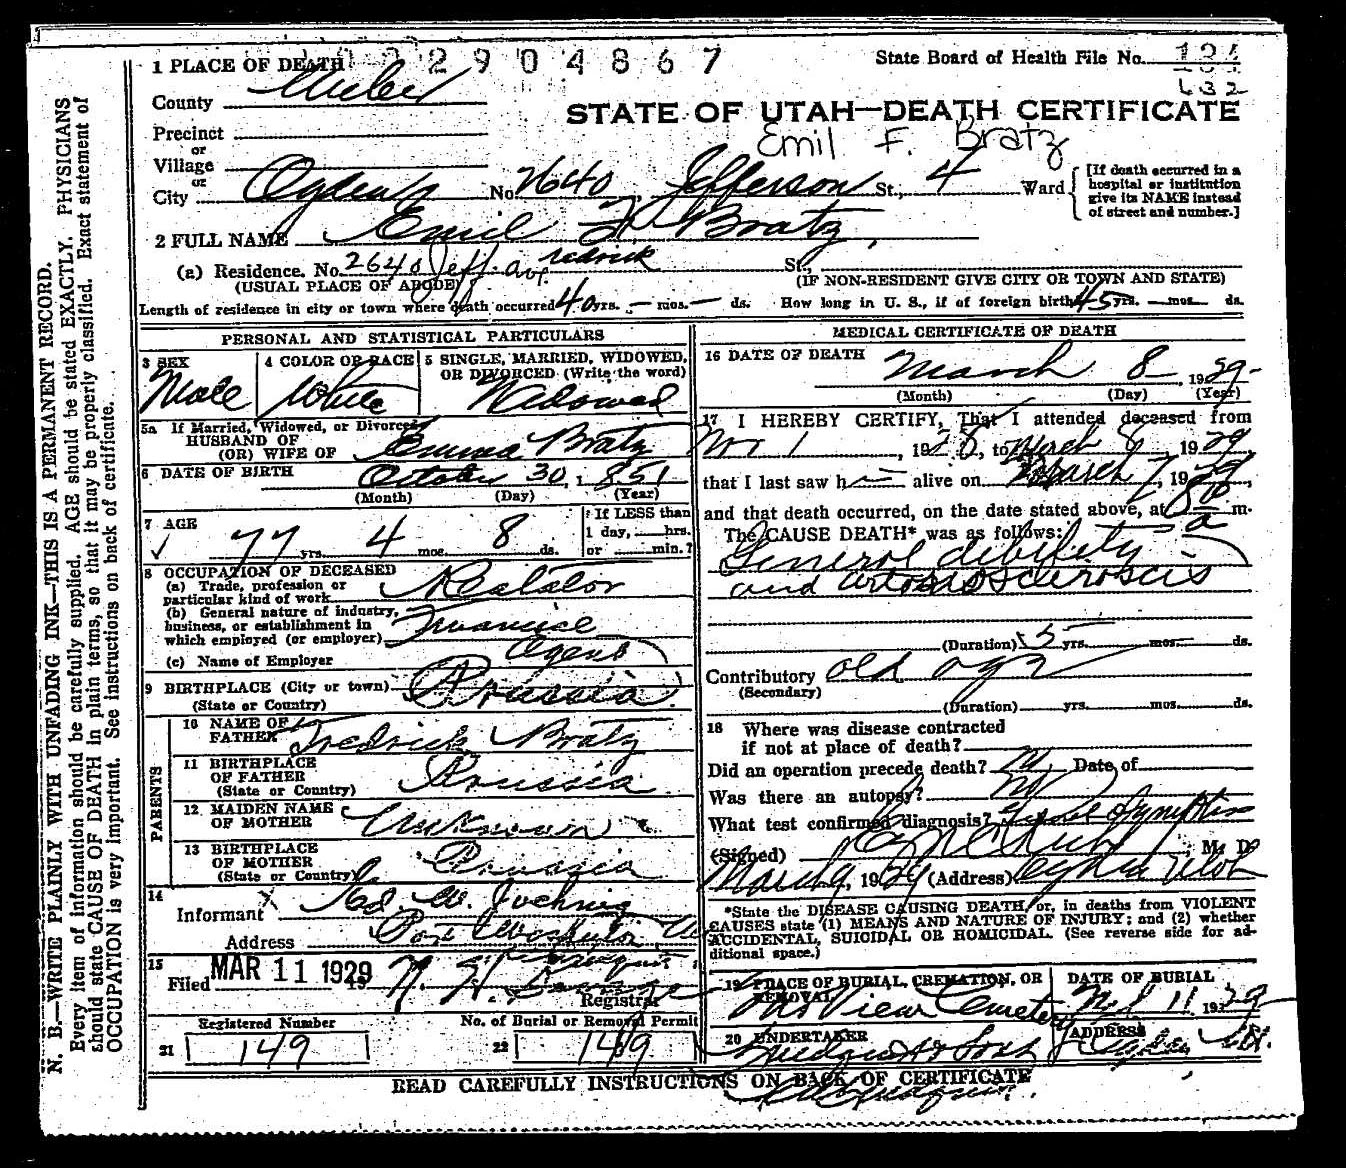 2904867
1 PLACE OF DEATH
State Board of Health File No.
632
County Weber
STATE OF UTAH—DEATH CERTIFICATE
Precinct
Emil F. Bratz
or
Village
or
City Ogden No. 2640 Jefferson St., 4 Ward
[If death occurred in a
hospital or institution
give its NAME instead
of street and number.]
2 FULL NAME Emil F. Bratz
redrick
(a) Residence. No. 2640 Jeff. Ave. St.,
(USUAL PLACE OF ABODE)
(IF NON-RESIDENT GIVE CITY OR TOWN AND STATE)
Length of residence in city or town where death occurred 40 yrs. — mos. — ds. How long in U. S., if of foreign birth 45 yrs. — mos. ds.
PERSONAL AND STATISTICAL PARTICULARS
3 SEX
Male
4 COLOR OR RACE
White
5 SINGLE, MARRIED, WIDOWED,
OR DIVORCED (Write the word)
Widowed
5a If Married, Widowed, or Divorced
HUSBAND OF
(OR) WIFE OF Emma Bratz
6 DATE OF BIRTH October 30, 1851
(Month) (Day) (Year)
7 AGE
77 yrs. 4 mos. 8 ds.
If LESS than
1 day, hrs.
or min.?
8 OCCUPATION OF DECEASED
(a) Trade, profession or
particular kind of work Realator
(b) General nature of industry,
business, or establishment in
which employed (or employer)
(c) Name of Employer
9 BIRTHPLACE (City or town)
(State or Country) Prussia
PARENTS
10 NAME OF
FATHER Fredrick Bratz
11 BIRTHPLACE
OF FATHER
(State or Country) Prussia
12 MAIDEN NAME
OF MOTHER Unknown
13 BIRTHPLACE
OF MOTHER
(State or Country) Prussia
14
Informant
Address
15
Filed MAR 11 1929
Registrar
Registered Number
21 149
No. of Burial or Removal Permit
22 149
MEDICAL CERTIFICATE OF DEATH
16 DATE OF DEATH
March 8, 1929
(Month) (Day) (Year)
17 I HEREBY CERTIFY, That I attended deceased from
Nov 1, 1928, to March 8 1929
that I last saw h alive on March 7, 1929,
and that death occurred, on the date stated above, at m.
The CAUSE DEATH* was as follows:
General debility
and artoriosclerosis
(Duration) 15 yrs. mos. ds.
Contributory old age
(Secondary)
(Duration) yrs. mos. ds.
18 Where was disease contracted
if not at place of death?
Did an operation precede death? no Date of
Was there an autopsy? No
What test confirmed diagnosis?
(Signed) M. D.
March 9, 1929 (Address) Ogden Utah
*State the DISEASE CAUSING DEATH, or, in deaths from VIOLENT
CAUSES state (1) MEANS AND NATURE OF INJURY; and (2) whether
ACCIDENTAL, SUICIDAL OR HOMICIDAL. (See reverse side for ad-
ditional space.)
19 PLACE OF BURIAL, CREMATION, OR
REMOVAL
View Cemetery
DATE OF BURIAL
11 1929
20 UNDERTAKER
ADDRESS
READ CAREFULLY INSTRUCTIONS ON BACK OF CERTIFICATE
N. B.—WRITE PLAINLY WITH UNFADING INK—THIS IS A PERMANENT RECORD.
Every item of information should be carefully supplied. AGE should be stated EXACTLY. PHYSICIANS
should state CAUSE OF DEATH in plain terms, so that it may be properly classified. Exact statement of
OCCUPATION is very important. See instructions on back of certificate.